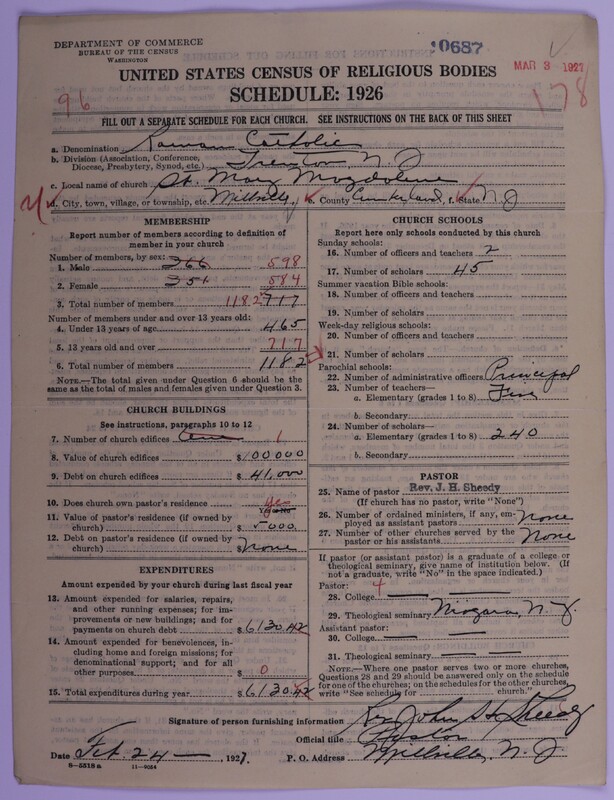 DEPARTMENT OF COMMERCE
BUREAU OF THE CENSUS
WASHINGTON
10687
MAR 3 1927
UNITED STATES CENSUS OF RELIGIOUS BODIES
SCHEDULE: 1926
96
178
FILL OUT A SEPARATE SCHEDULE FOR EACH CHURCH. SEE INSTRUCTIONS ON THE BACK OF THIS SHEET
a. Denomination Roman Catholic
b. Division (Association, Conference, Diocese, Presbytery, Synod, etc.) Trenton N. J
c. Local name of church St. Mary Magdalene
d. City, town, village, or township, etc. Millville e. County Cumberland, f. State N. J
MEMBERSHIP
Report number of members according to definition of
member in your church
Number of members, by sex:
1. Male 366 598
2. Female 351 584
3. Total number of members 1182 717
Number of members under and over 13 years old:
4. Under 13 years of age 465
5. 13 years old and over 717
6. Total number of members 1182
NOTE.—The total given under Question 6 should be
same as the total of males and females given under Question 3.
CHURCH BUILDINGS
See instructions, paragraphs 10 to 12
7. Number of church edifices One 1
8. Value of church edifices $100000
9. Debt on church edifices $41,000
10. Does church own pastor's residence yes
Yes or No
11. Value of pastor's residence (if owned by
church) $5000
12. Debt on pastor's residence (if owned by
church) $None
EXPENDITURES
Amount expended by your church during last fiscal year
13. Amount expended for salaries, repairs,
and other running expenses; for im-
provements or new buildings; and for
payments on church debt $6130.42
14. Amount expended for benevolences,
including home and foreign missions; for
denominational support; and for all
other purposes $0
15. Total expenditures during year $6130.42
CHURCH SCHOOLS
Report here only schools conducted by this church
Sunday schools:
16. Number of officers and teachers 2
17. Number of scholars 45
Summer vacation Bible schools:
18. Number of officers and teachers
19. Number of scholars
Week-day religious schools:
20. Number of officers and teachers
21. Number of scholars
Parochial schools:
22. Number of administrative officers Principal
23. Number of teachers—
a. Elementary (grades 1 to 8) Five
b. Secondary
24. Number of scholars—
a. Elementary (grades 1 to 8) 240
b. Secondary
PASTOR
25. Name of pastor Rev. J. H. Sheedy
(If church has no pastor, write "None")
26. Number of ordained ministers, if any, em-
ployed as assistant pastors None
27. Number of other churches served by the
pastor or his assistants None
If pastor (or assistant pastor) is a graduate of a college or
theological seminary, give name of institution below. (If
not a graduate, write "No" in the space indicated.)
Pastor: 4
28. College
29. Theological seminary Niagara, N. Y.
Assistant pastor:
30. College
31. Theological seminary
NOTE.—Where one pastor serves two or more churches,
Questions 28 and 29 should be answered only on the schedule
for one of the churches; on the schedules for the other churches,
write "See schedule for church."
Signature of person furnishing information Rev John H. Sheedy
Official title Pastor
Date Feb. 24, 1927. P. O. Address Millville, N. J.
8—5518 a 11—9084